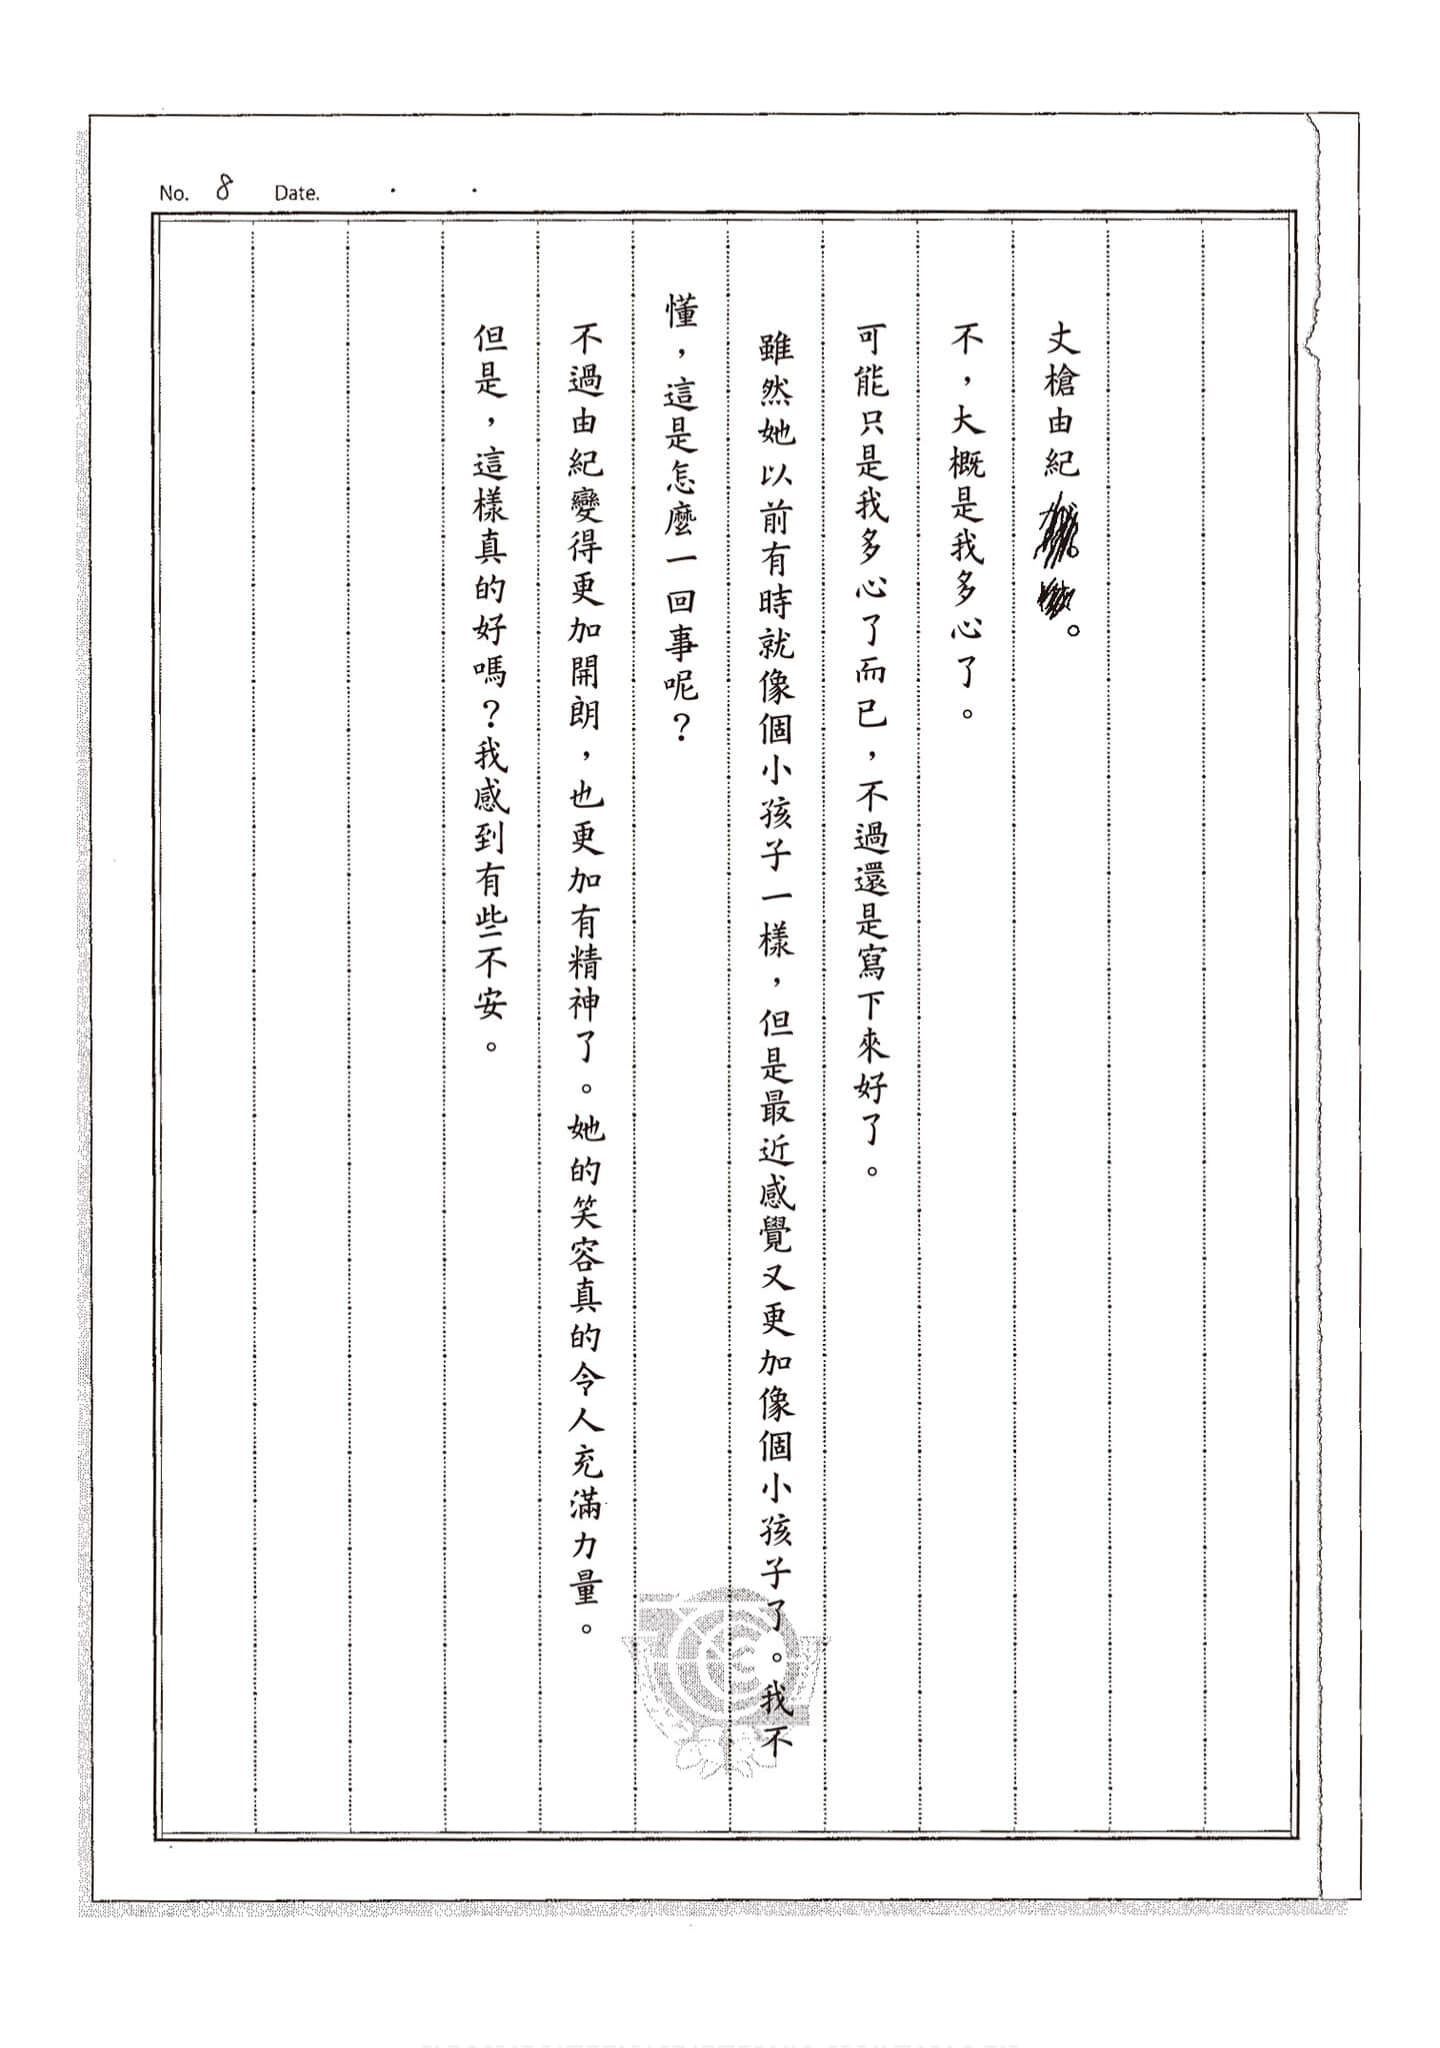 No. 8 Date. . .
丈槍由紀。
不，大概是我多心了。
可能只是我多心了而已，不過還是寫下來好了。
雖然她以前有時就像個小孩子一樣，但是最近感覺又更加像個小孩子了。我不
懂，這是怎麼一回事呢？
不過由紀變得更加開朗，也更加有精神了。她的笑容真的令人充滿力量。
但是，這樣真的好嗎？我感到有些不安。